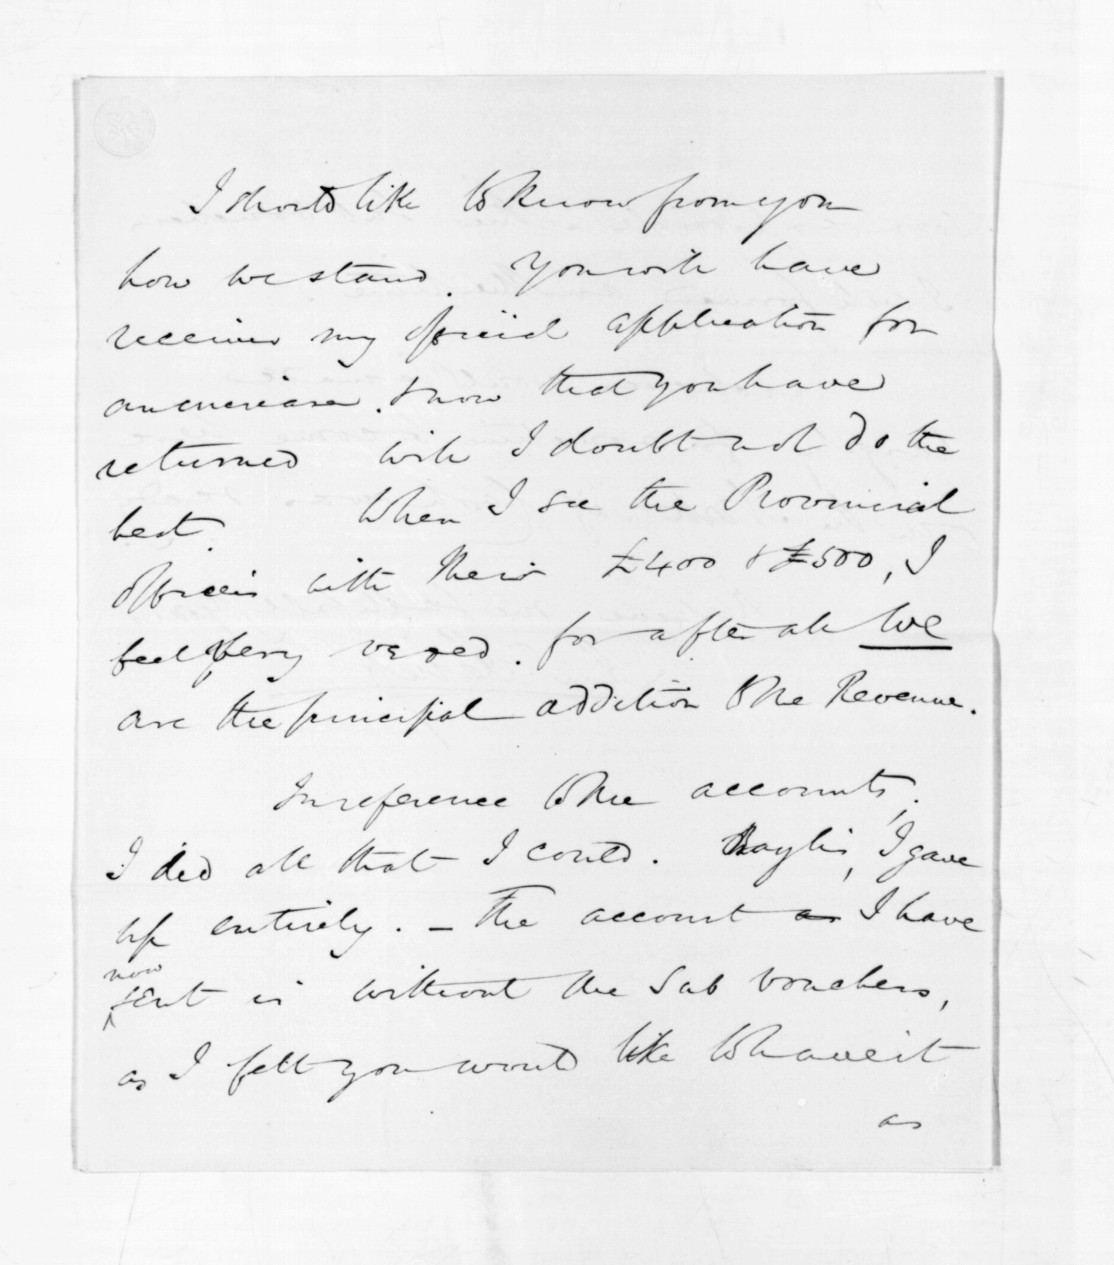 I should like to know from you
how we stand. You will have
received my official application for
an increase. & now that you have
returned will I doubt not do the
best. When I see the Provincial
Officers with their £400 & £500, I
feel very vexed. for after all we
are the principal addition to the Revenue.
In reference to the accounts,
I did all that I could. Baylis, I gave
up entirely. - The account as I have
now
sent is without the Sub vouchers,
as I felt you would like to have it
as